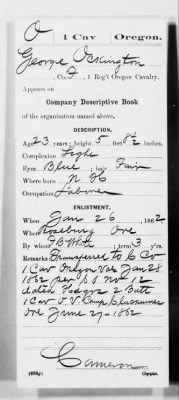 O | 1 Cav | Oregon.
George Ockington
, Co. F, 1 Reg't Oregon Cavalry.
Appears on
Company Descriptive Book
of the organization named above.
DESCRIPTION.
Age 23 years; height 5 feet 8½ inches.
Complexion Light
Eyes Blue; hair Fair
Where born N Y
Occupation Laborer
ENLISTMENT.
When Jan 26, 1862
Where Roseburg Ore
By whom White; term 3 y'rs.
Remarks Transferred to C Co
1 Cav Oregon Vol Jan 28
1862 per S O No 12
dated Hedqrs 2 Batt
1 Cav O.V. Camp
Ore June 27-1862
Cameron
Copyist.